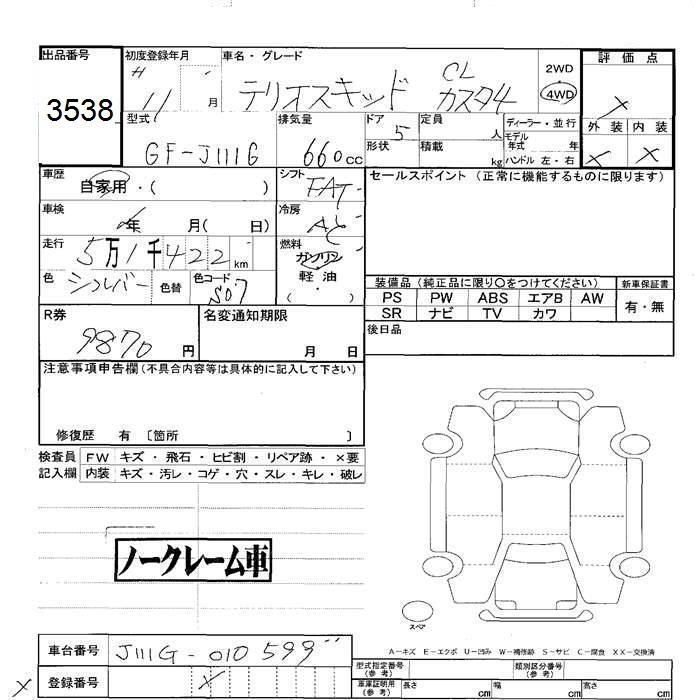 出品番号 初度登録年月 車名・グレード 評価点
3538 H 11 月 テリオスキッド CL カスタム 2WD 4WD ×
型式 排気量 ドア 定員 ディーラー・並行 外装 内装
GF-J111G 660cc 5 人 モデル年式 年 × ×
形状 積載 kg ハンドル 左・右
車歴 自家用・( ) シフト FAT セールスポイント (正常に機能するものに限ります)
車検 年 月( 日) 冷房 AC
走行 5万1千422km 燃料 ガソリン
色 シルバー 色替 色コード S07 軽油 ( ・ )
装備品 (純正品に限り○をつけてください) 新車保証書
PS PW ABS エアB AW 有・無
SR ナビ TV カワ
R券 9870円 名変通知期限 月 日 後日品
注意事項申告欄(不具合内容等は具体的に記入して下さい)
修復歴 有 〔箇所 〕
検査員 FW キズ・飛石・ヒビ割・リペア跡・×要
記入欄 内装 キズ・汚レ・コゲ・穴・スレ・キレ・破レ
ノークレーム車
スペア
A-キズ E-エクボ U-凹み W-補修跡 S-サビ C-腐食 XX-交換済
車台番号 J111G-010599
型式指定番号(参考) 類別区分番号(参考)
× 登録番号 ×
車庫証明用(参考) 長さ cm 幅 cm 高さ cm